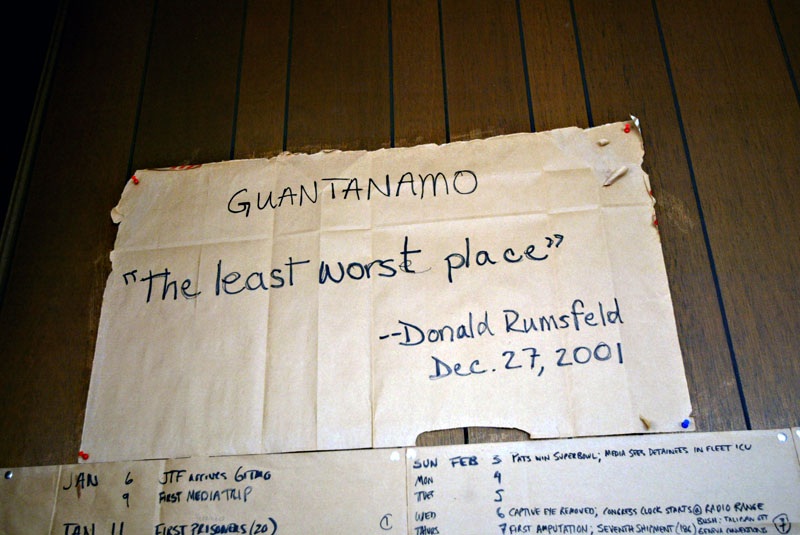 GUANTANAMO
"The least worst place"
--Donald Rumsfeld
Dec. 27, 2001
JAN 6 JTF ARRIVES GITMO
9 FIRST MEDIA TRIP
JAN 11 FIRST PRISONERS (20) 1
SUN FEB 3 PATS WIN SUPERBOWL; MEDIA SEES DETAINEES IN FLEET ICU
MON 4
TUES 5
WED 6 CAPTIVE EYE REMOVED; CONGRESS CLOCK STARTS @ RADIO RANGE
THURS 7 FIRST AMPUTATION; SEVENTH SHIPMENT (186) BUSH: TALIBAN GET GENEVA CONVENTIONS 7